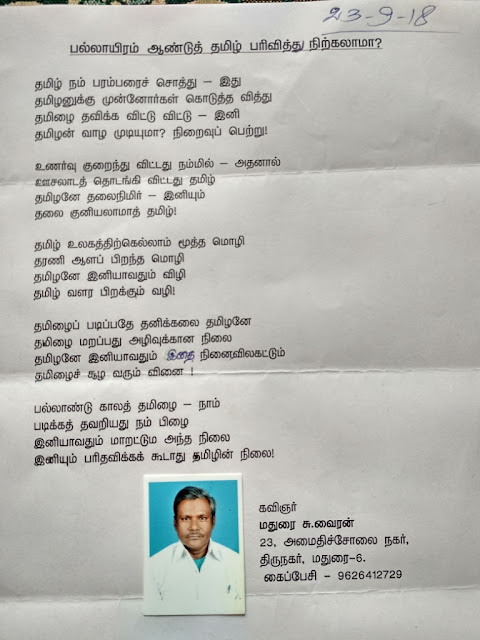 23-9-18
பல்லாயிரம் ஆண்டுத் தமிழ் பரிவித்து நிற்கலாமா?
தமிழ் நம் பரம்பரைச் சொத்து – இது
தமிழனுக்கு முன்னோர்கள் கொடுத்த வித்து
தமிழை தவிக்க விட்டு விட்டு – இனி
தமிழன் வாழ முடியுமா? நிறைவுப் பெற்று!
உணர்வு குறைந்து விட்டது நம்மில் – அதனால்
ஊசலாடத் தொடங்கி விட்டது தமிழ்
தமிழனே தலைநிமிர் – இனியும்
தலை குனியலாமாத் தமிழ்!
தமிழ் உலகத்திற்கெல்லாம் மூத்த மொழி
தரணி ஆளப் பிறந்த மொழி
தமிழனே இனியாவதும் விழி
தமிழ் வளர பிறக்கும் வழி!
தமிழைப் படிப்பதே தனிக்கலை தமிழனே
தமிழை மறப்பது அழிவுக்கான நிலை
தமிழனே இனியாவதும் இதை நினைவிலகட்டும்
தமிழைச் சூழ வரும் வினை !
பல்லாண்டு காலத் தமிழை – நாம்
படிக்கத் தவறியது நம் பிழை
இனியாவதும் மாறட்டும அந்த நிலை
இனியும் பரிதவிக்கக் கூடாது தமிழின் நிலை!
கவிஞர்
மதுரை சு.வைரன்
23, அமைதிச்சோலை நகர்,
திருநகர், மதுரை-6.
கைப்பேசி - 9626412729